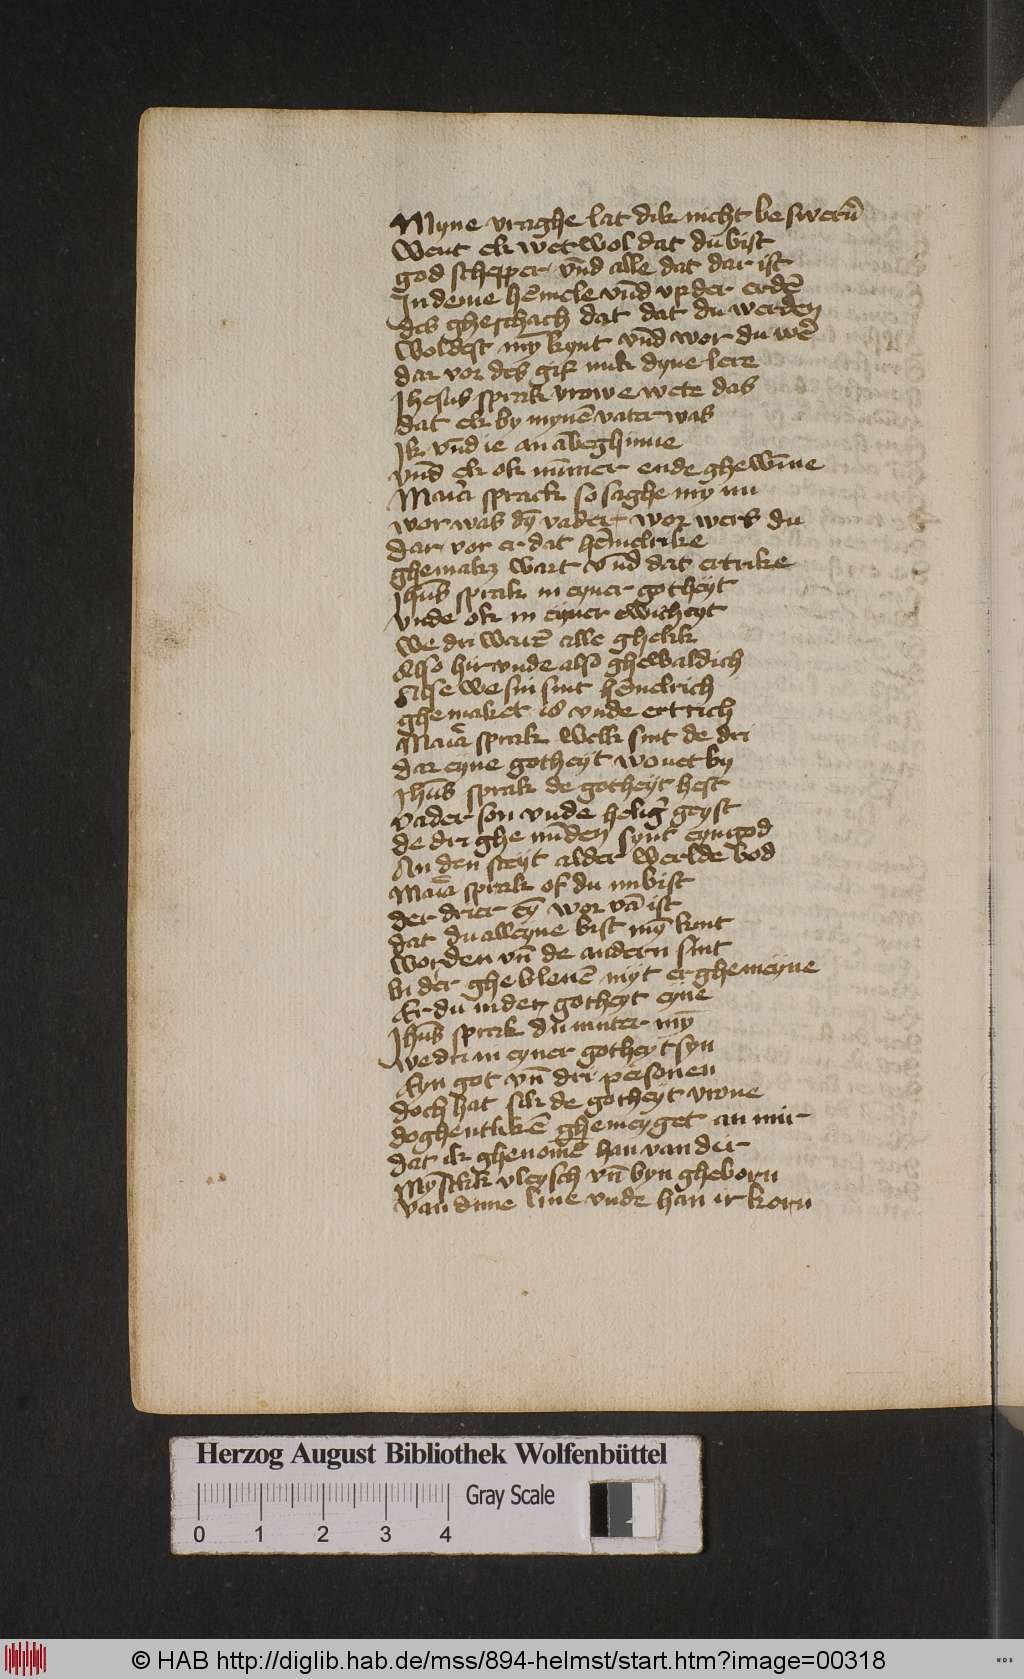 Myne vraghe lat dik nicht besweru̅
Went ek wet wol dat du bist
god schepper vn̅d alle dat dar ist
In deme he̅mele vn̅d vp der erde̅
des gheschach dat dat du werden
woldest my̅ kynt vn̅d wor du we̅
dar vor des gif mik dyne lere
Jhesus sprak vrowe wete das
dat ek by myne̅ vater was
Ik vn̅d ie an a̅beghinne
vnd̅ ek ok nu̅mer ende ghewi̅ne
Maria sprack so saghe my nu
wor was dy̅ vader wor wers du
dar vor er dat he̅melrike
ghemaket wart vn̅d dat ertrike
Jhu̅s sprak in eyner gotheyt
vnde ok in eyner ewicheyt
we dri ware̅ alle ghelik
Also hir vnde also ghewaldich
Alse we sin sint he̅melrich
ghemaket is vnde ertrich
Maria sprak welk sint de dri
dar eyne gotheyt wonet by
Jhu̅s sprak de gotheyt hest
vader son vnde helig̅ geyst
de dri ghenu̅den synt eyn god
An den steyt alder werlde bod
Maria sprak of du nu bist
der drier ey̅ wor va̅ ist
dat du alleyne bist my̅ kint
worden vn̅ de andern sint
bi der ghebleue̅ myt er ghemeyne
Er du in der gotheyt eyne
Jhu̅s sprak du muter my̅
we dri in eyner gotheyt syn
Eyn got vn̅ dri personen
doch hat sik de gotheyt vrone
doghentlike̅ ghemeyget an mir
dat ik gheno̅me̅ han van dir
Mynslik vleysch vn̅ byn gheborn
van dime liue vnde han irkorn
Herzog August Bibliothek Wolfenbüttel
Gray Scale
0 1 2 3 4
© HAB http://diglib.hab.de/mss/894-helmst/start.htm?image=00318